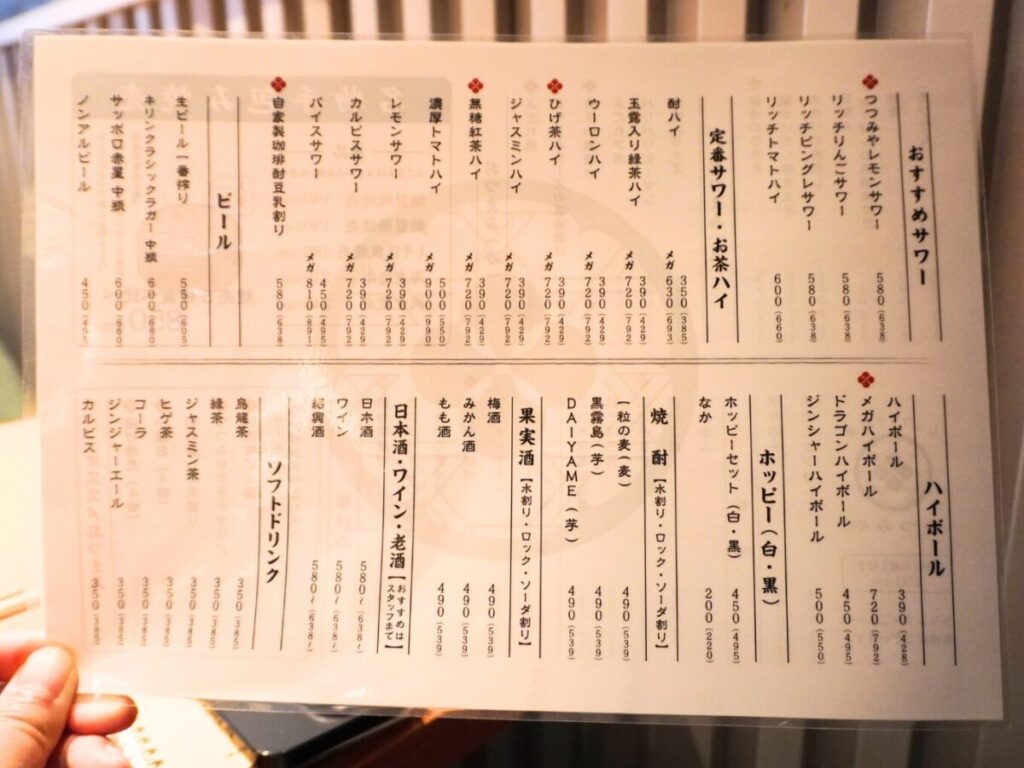 おすすめサワー
つつみやレモンサワー 580(638)
リッチりんごサワー 580(638)
リッチピングレサワー 580(638)
リッチトマトハイ 600(660)
定番サワー・お茶ハイ
酎ハイ 350(385) メガ 630(693)
玉露入り緑茶ハイ 390(429) メガ 720(792)
ウーロンハイ 390(429) メガ 720(792)
ひげ茶ハイ 390(429) メガ 720(792)
ジャスミンハイ 390(429) メガ 720(792)
無糖紅茶ハイ 390(429) メガ 720(792)
濃厚トマトハイ 500(550) メガ 900(990)
レモンサワー 390(429) メガ 720(792)
カルピスサワー 390(429) メガ 720(792)
バイスサワー 450(495) メガ 810(891)
自家製珈琲酎豆乳割り 580(638)
ビール
生ビール一番搾り 550(605)
キリンクラシックラガー 中瓶 600(660)
サッポロ赤星 中瓶 600(660)
ノンアルビール 450(495)
ハイボール
ハイボール 390(428)
メガハイボール 720(792)
ドラゴンハイボール 450(495)
ジンジャーハイボール 500(550)
ホッピー(白・黒)
ホッピーセット(白・黒) 450(495)
なか 200(220)
焼酎【水割り・ロック・ソーダ割り】
一粒の麦(麦) 490(539)
黒霧島(芋) 490(539)
DAIYAME(芋) 490(539)
果実酒【水割り・ロック・ソーダ割り】
梅酒 490(539)
みかん酒 490(539)
もも酒 490(539)
日本酒・ワイン・老酒【おすすめはスタッフまで】
日本酒 580〜(638〜)
ワイン 580〜(638〜)
紹興酒 580〜(638〜)
ソフトドリンク
烏龍茶 350(385)
緑茶 350(385)
ジャスミン茶 350(385)
ヒゲ茶 350(385)
コーラ 350(385)
ジンジャーエール 350(385)
カルピス 350(385)